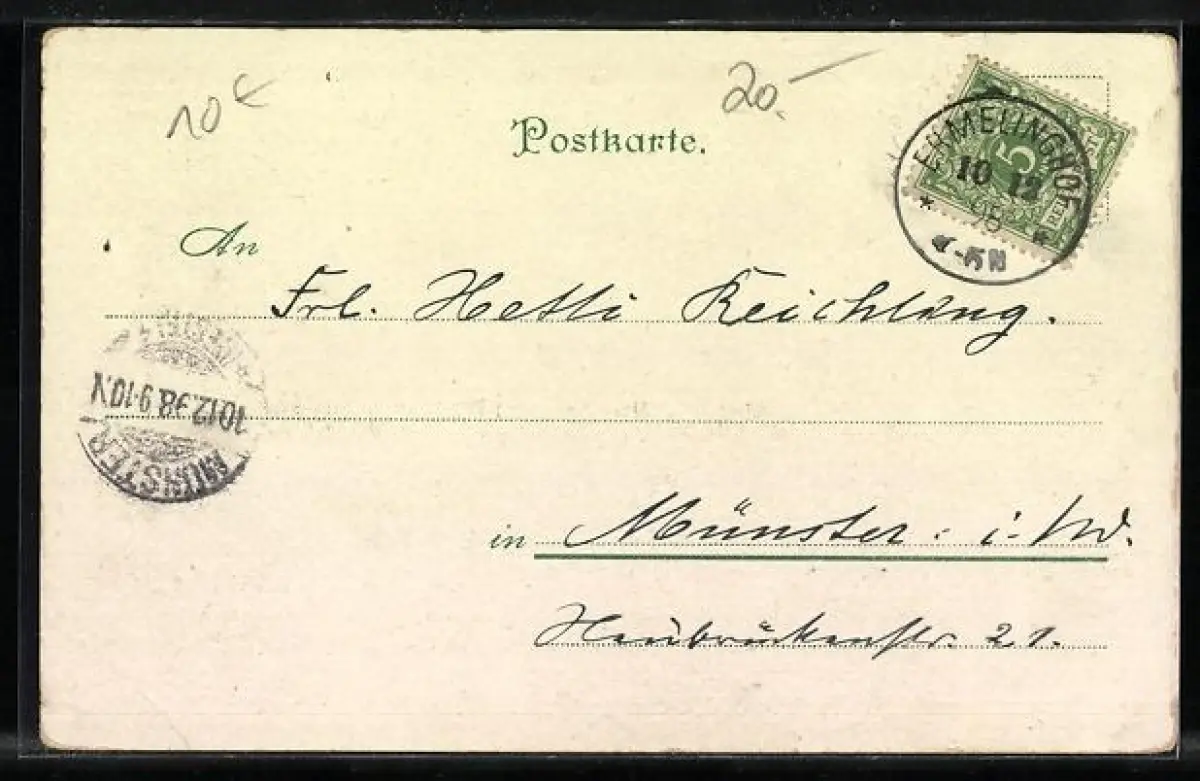 10 €
20.-
Postkarte.
ERMELINGHOF
5
10 12
98
An
Frl. Hetti Reichling.
MÜNSTER
10.12.98 9-10.V
in Münster i. W.
Neubrückenstr. 21.